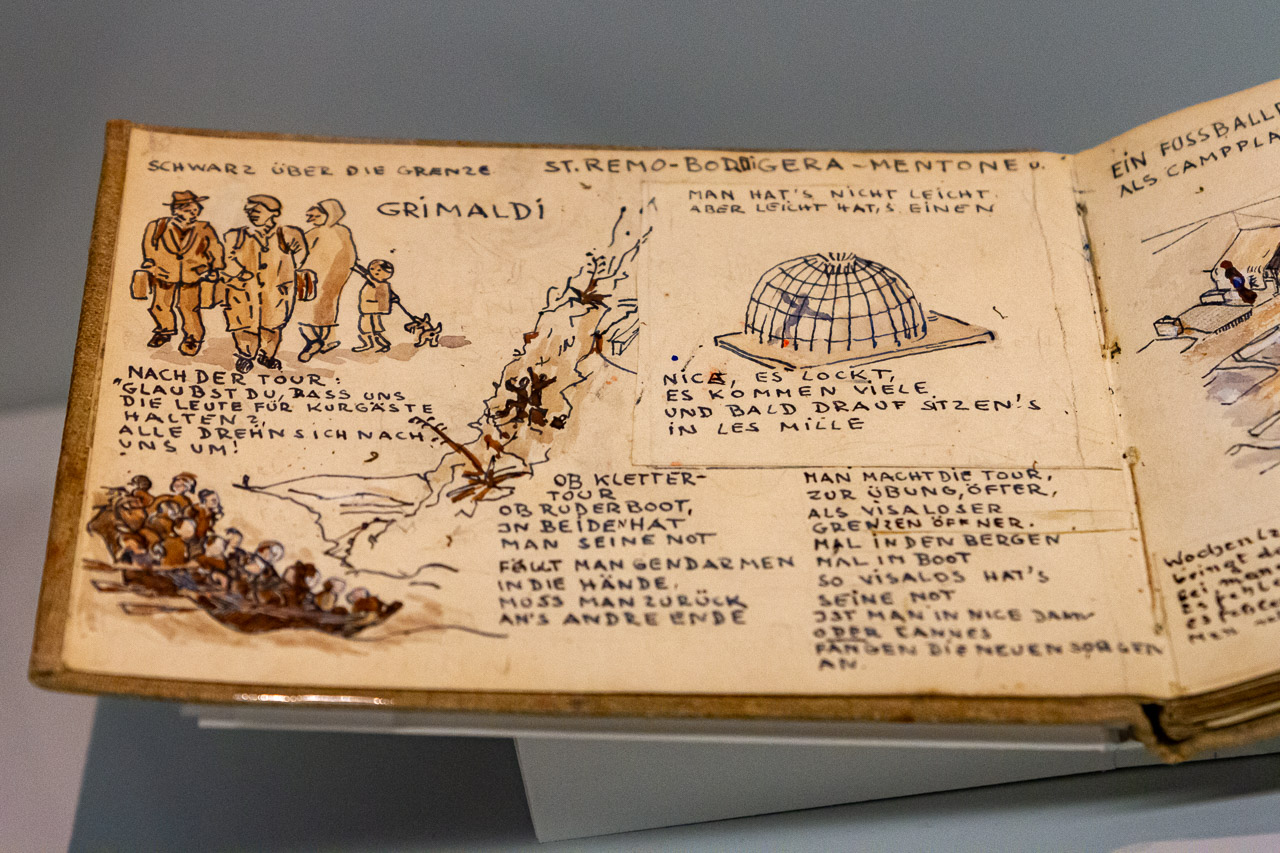 SCHWARZ ÜBER DIE GRENZE
ST. REMO-BORDIGERA-MENTONE U.
GRIMALDI
NACH DER TOUR:
"GLAUBST DU, DASS UNS
DIE LEUTE FÜR KURGÄSTE
HALTEN?,
ALLE DREHN SICH NACH
UNS UM!
MAN HAT'S NICHT LEICHT.
ABER LEICHT HAT,S EINEN
NICE, ES LOCKT,
ES KOMMEN VIELE
UND BALD DRAUF SITZEN'S
IN LES MILLE
OB KLETTER-
TOUR
OB RUDERBOOT,
IN BEIDEN HAT
MAN SEINE NOT
FÄLLT MAN GENDARMEN
IN DIE HÄNDE,
MUSS MAN ZURÜCK
AN'S ANDRE ENDE
MAN MACHT DIE TOUR,
ZUR ÜBUNG, ÖFTER,
ALS VISALOSER
GRENZEN ÖFFNER.
MAL IN DEN BERGEN
MAL IM BOOT
SO VISALOS HAT'S
SEINE NOT
IST MAN IN NICE DANN
ODER CANNES
FANGEN DIE NEUEN SORGEN
AN.
EIN FUSSBALL
ALS CAMPPLA
Wochen
bringt
es fehl